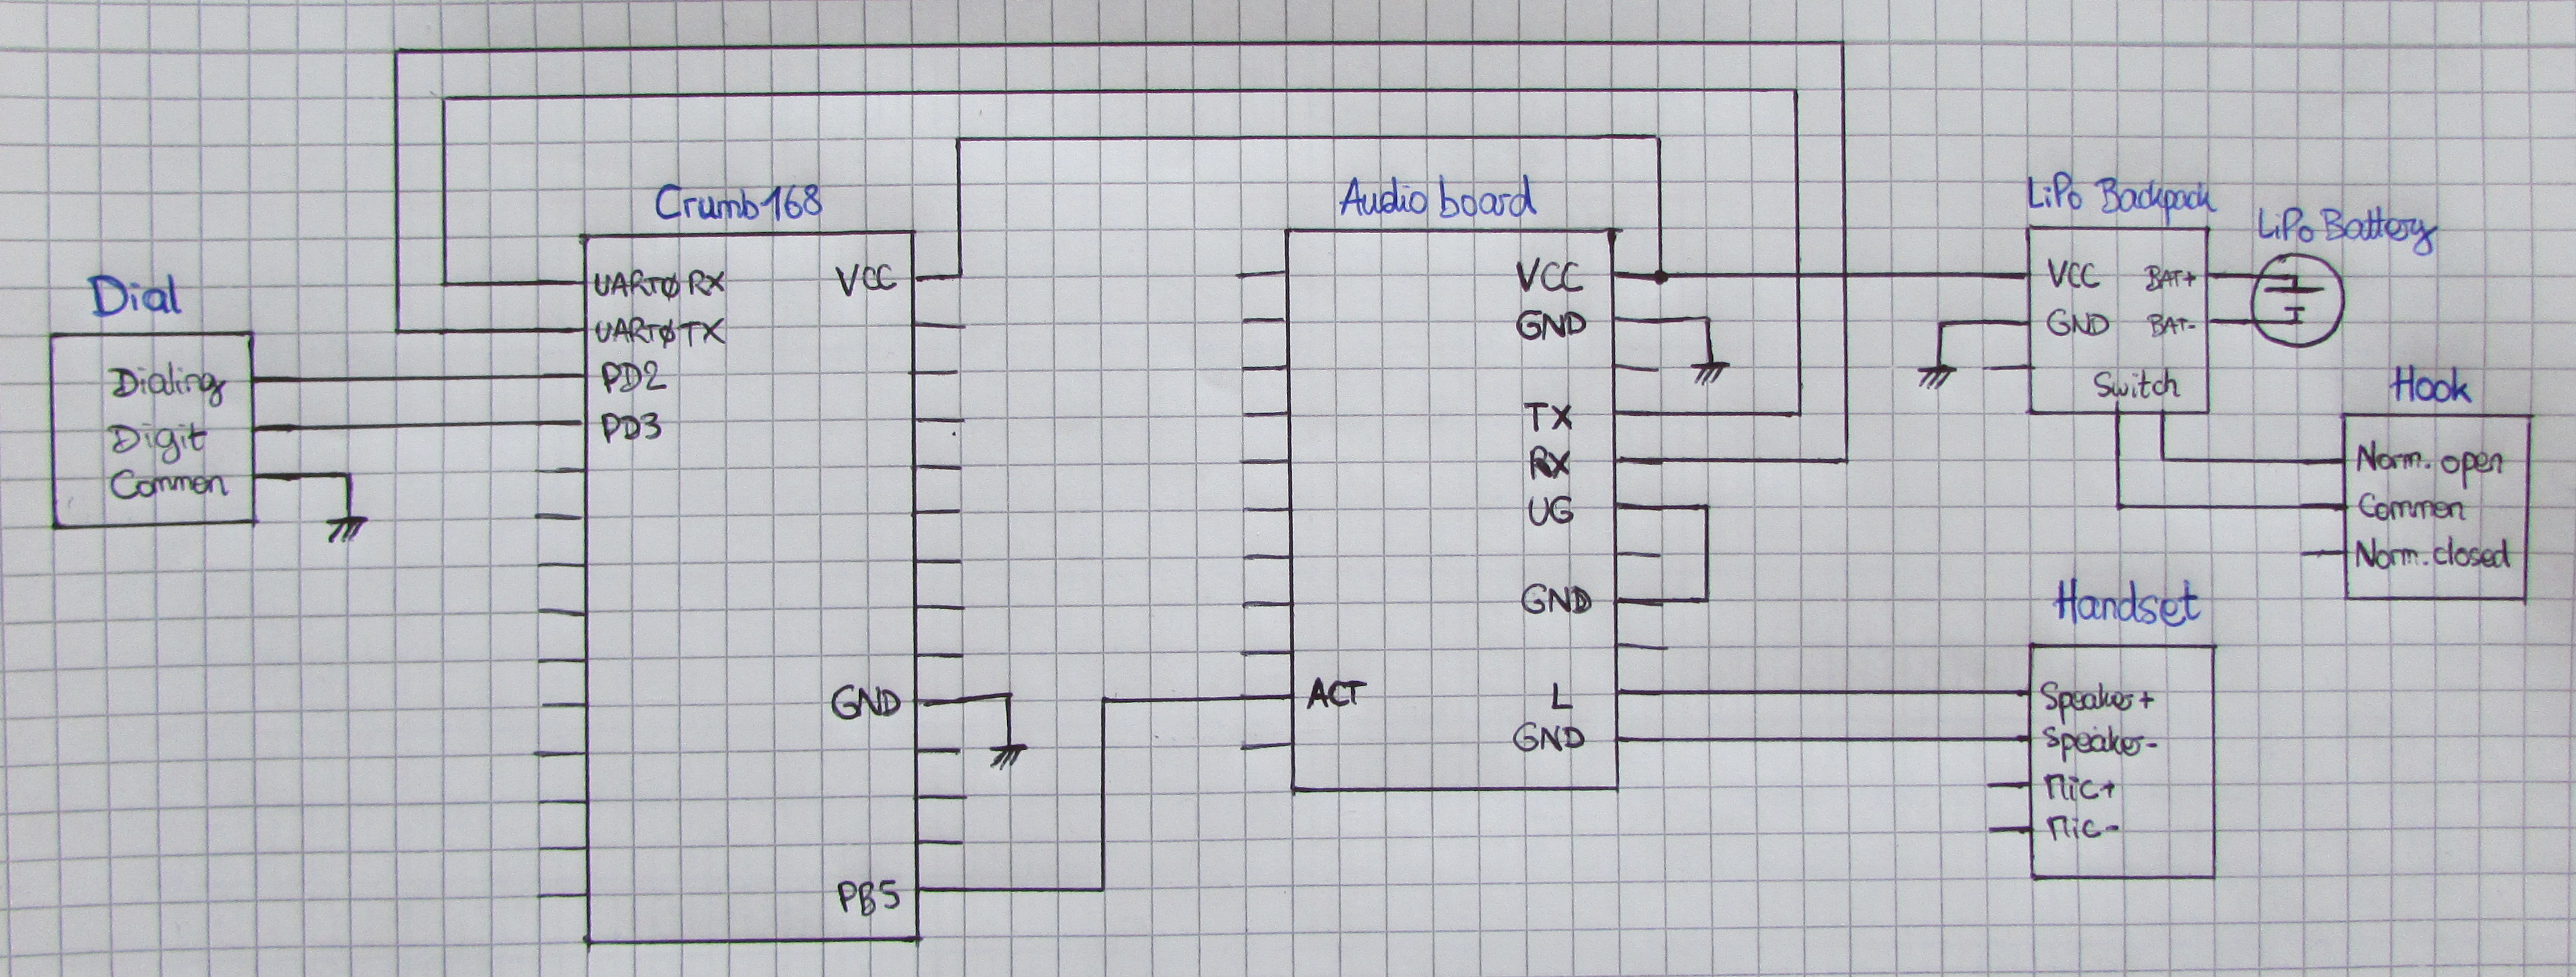 Dial
Dialing
Digit
Common
Crumb168
UART0 RX
UART0 TX
PD2
PD3
VCC
GND
PB5
Audio board
ACT
VCC
GND
TX
RX
UG
GND
L
GND
LiPo Backpack
VCC
GND
BAT+
BAT-
Switch
LiPo Battery
Hook
Norm. open
Common
Norm. closed
Handset
Speaker+
Speaker-
Mic+
Mic-